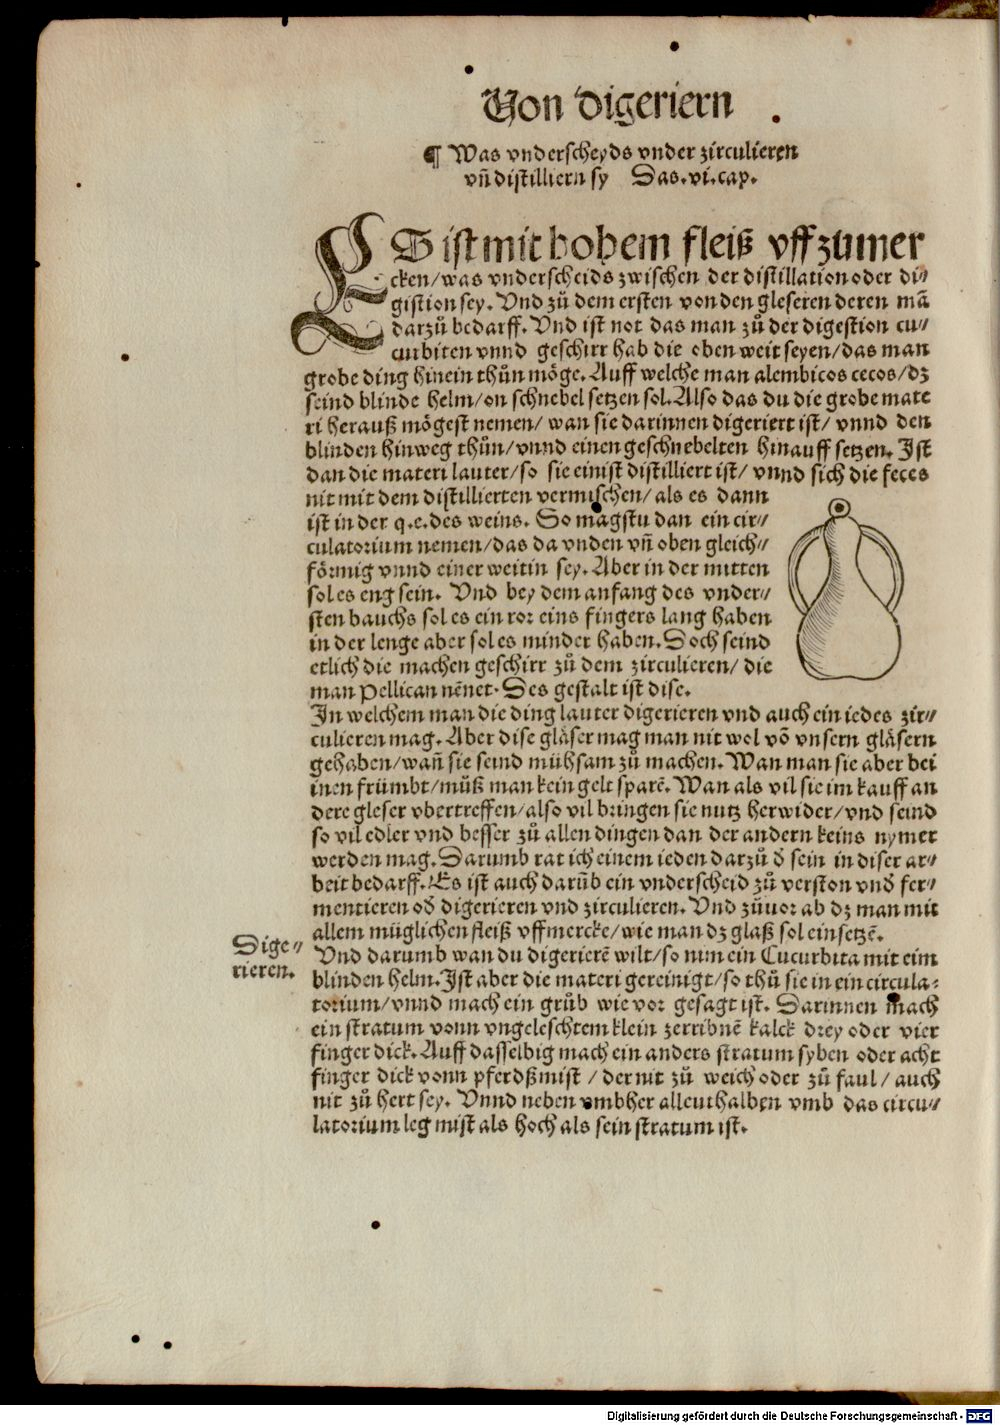 Von digeriern
¶ Was vnderscheyds vnder zirculieren
vñ distilliern sy Das.vi.cap.
ES ist mit hohem fleiß vff zumer
cken/was vnderscheids zwischen der distillation oder di⸗
gistion sey. Vnd zů dem ersten von den gleseren deren mā
darzů bedarff. Vnd ist not das man zů der digestion cu⸗
curbiten vnnd geschirr hab die oben weit seyen/das man
grobe ding hinein thůn möge. Auff welche man alembicos cecos/dz
seind blinde helm/on schnebel setzen sol. Also das du die grobe mate
ri herauß mögest nemen/ wan sie darinnen digeriert ist/ vnnd den
blinden hinweg thůn/vnnd einen geschnebelten hinauff setzen. Ist
dan die materi lauter/so sie einist distilliert ist/ vnnd sich die feces
nit mit dem distillierten vermischen/ als es dann
ist in der q.e.des weins. So magstu dan ein cir⸗
culatorium nemen/das da vnden vñ oben gleich⸗
förmig vnnd einer weitin sey. Aber in der mitten
sol es eng sein. Vnd bey dem anfang des vnder⸗
sten bauchs sol es ein ror eins fingers lang haben
in der lenge aber sol es minder haben. Doch seind
etlich die machen geschirr zů dem zirculieren/ die
man Pellican nēnet. Des gestalt ist dise.
In welchem man die ding lauter digerieren vnd auch ein iedes zir⸗
culieren mag. Aber dise gläser mag man nit wol vō vnsern gläsern
gehaben/wañ sie seind mühsam zů machen. Wan man sie aber bei
inen frümbt/můß man kein gelt sparē. Wan als vil sie im kauff an
dere gleser vbertreffen/also vil bringen sie nutz herwider/vnd seind
so vil edler vnd besser zů allen dingen dan der andern keins nymer
werden mag. Darumb rat ich einem ieden darzů d̕ sein in diser ar⸗
beit bedarff. Es ist auch darūb ein vnderscheid zů verston vnd̕ fer⸗
mentieren od̕ digerieren vnd zirculieren. Vnd zůuor ab dz man mit
allem müglichen fleiß vffmercke/wie man dz glaß sol einsetzē.
Dige⸗
rieren.
Vnd darumb wan du digerierē wilt/so nim ein Cucurbita mit eim
blinden helm. Ist aber die materi gereinigt/so thů sie in ein circula⸗
torium/vnnd mach ein grůb wie vor gesagt ist. Darinnen mach
ein stratum vonn vngeleschtem klein zerribnē kalck drey oder vier
finger dick. Auff dasselbig mach ein anders stratum syben oder acht
finger dick vonn pferdßmist / der nit zů weich oder zů faul/ auch
nit zů hert sey. Vnnd neben vmbher allenthalben vmb das circu⸗
latorium leg mist als hoch als sein stratum ist.
Digitalisierung gefördert durch die Deutsche Forschungsgemeinschaft - DFG